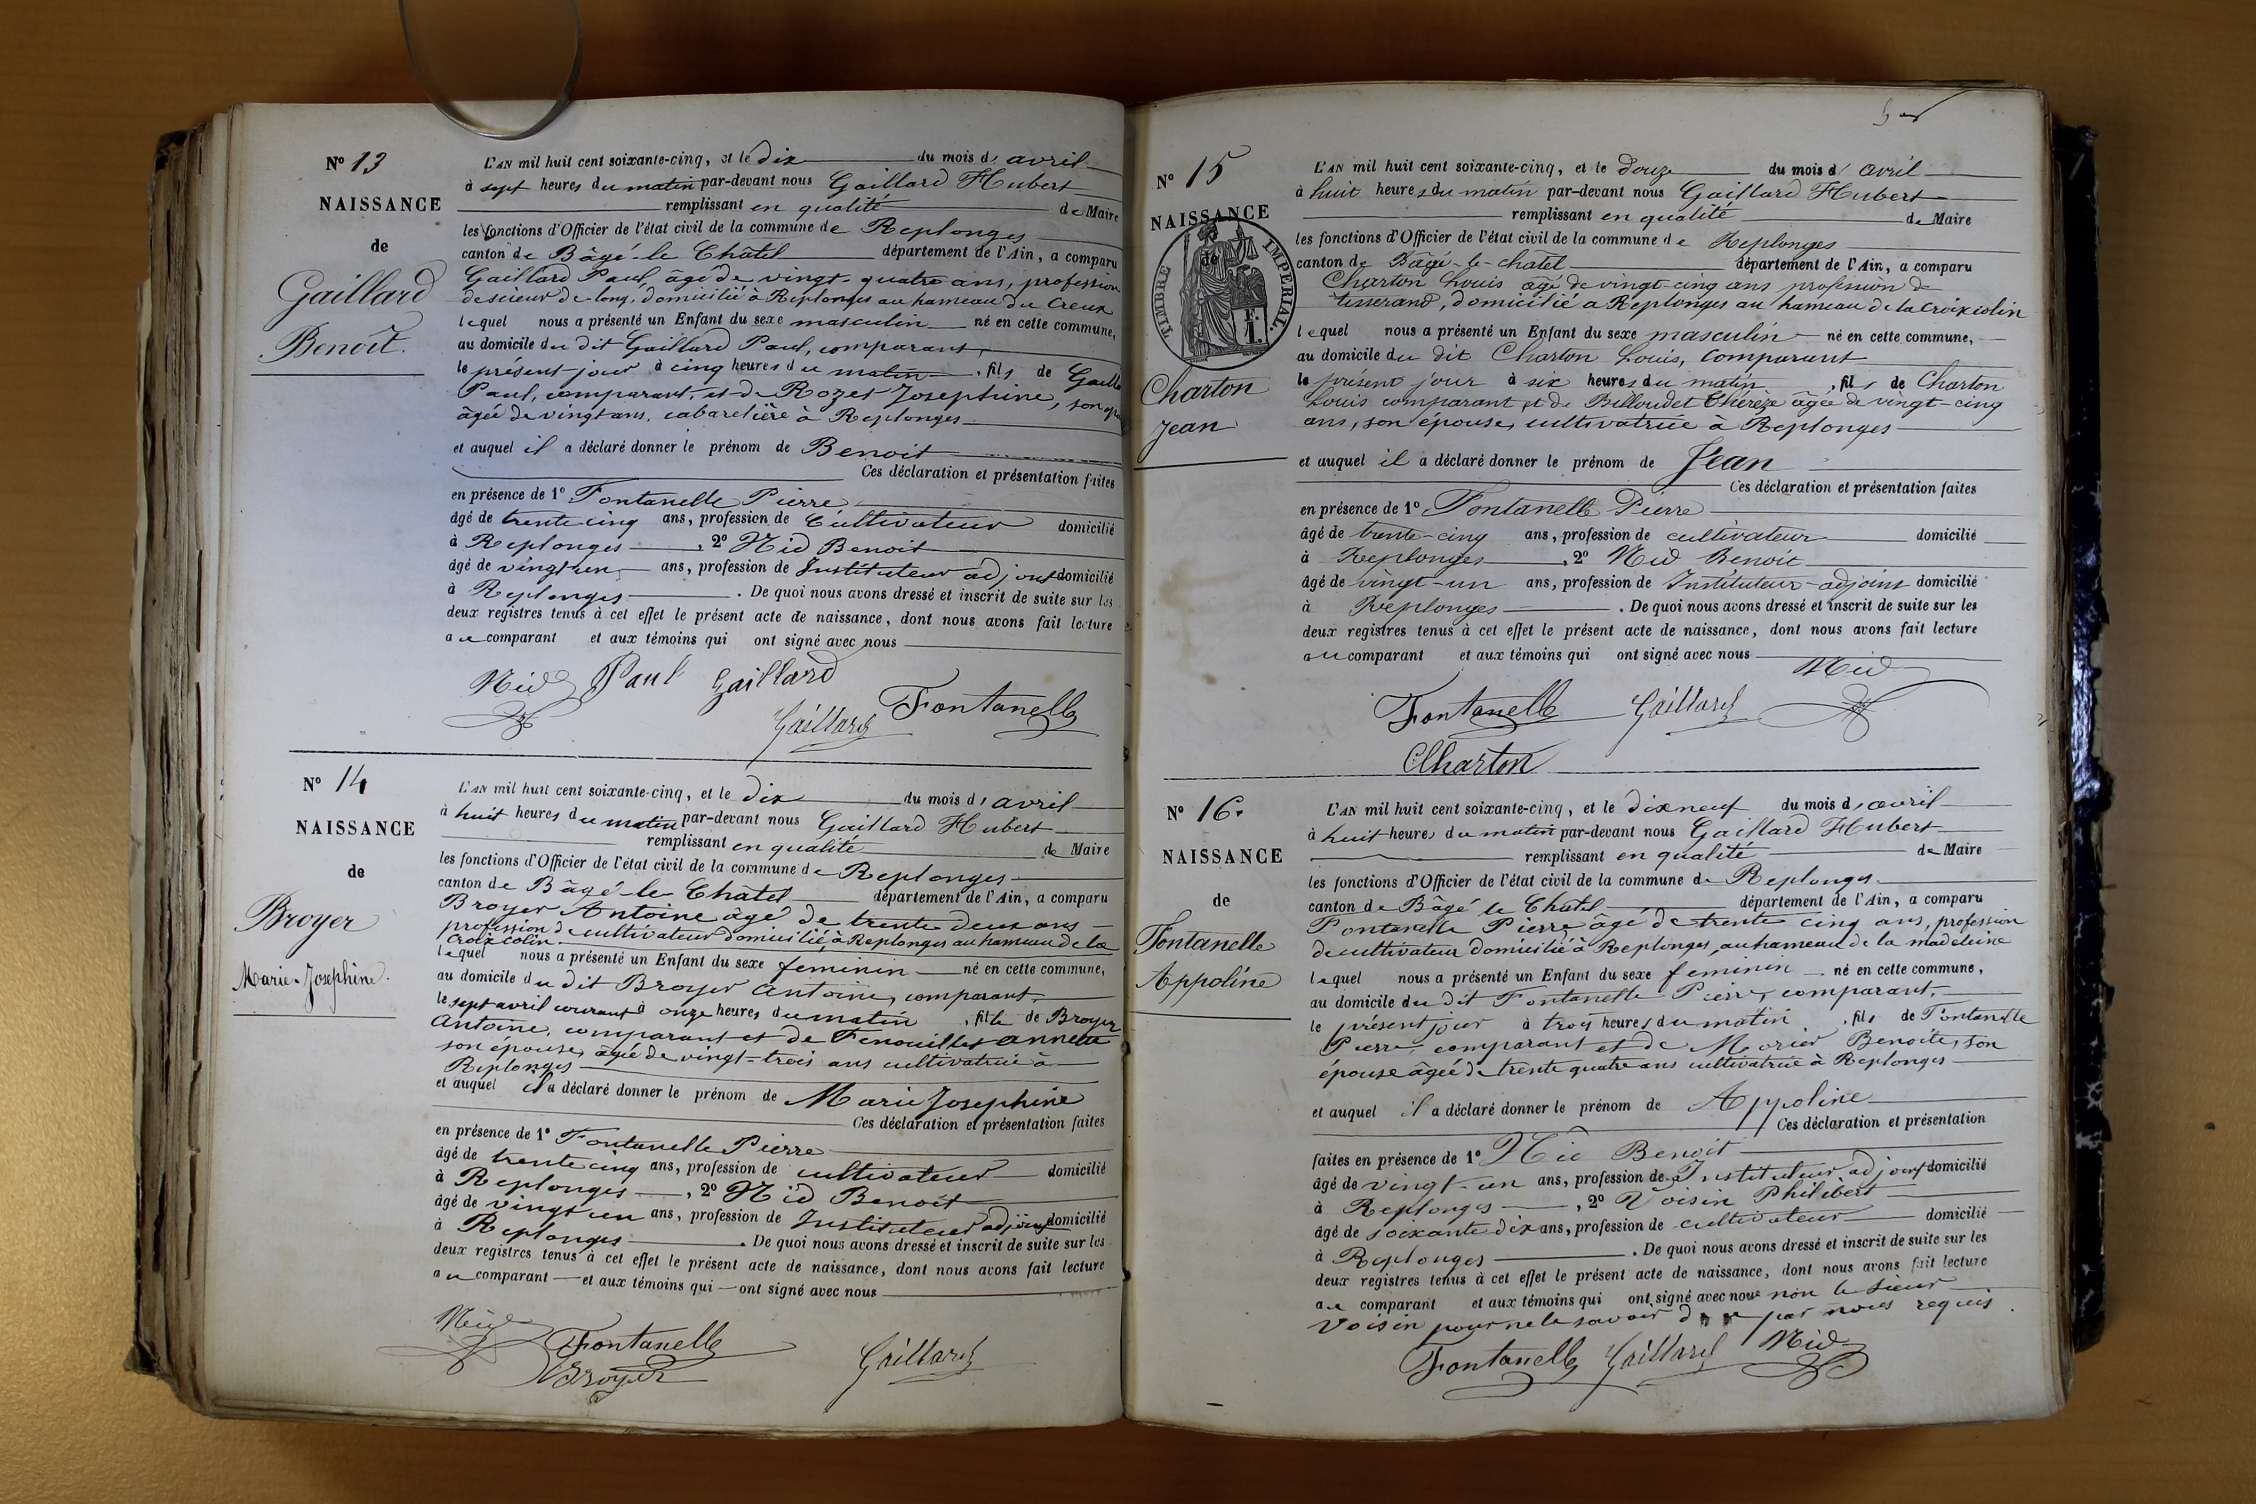 N° 13
NAISSANCE
de
Gaillard
Benoît.
L'AN mil huit cent soixante-cinq, et le dix du mois d'avril
à sept heures du matin par-devant nous Gaillard Hubert
remplissant en qualité de Maire
les fonctions d'Officier de l'état civil de la commune de Replonges
canton de Bâgé-le-Châtel département de l'Ain, a comparu
Gaillard Paul, âgé de vingt-quatre ans, profession
de scieur de long, domicilié à Replonges au hameau du Creux
lequel nous a présenté un Enfant du sexe masculin né en cette commune,
au domicile du dit Gaillard Paul, comparant,
le présent jour à cinq heures du matin, fils de
Paul, comparant, et de Rozet Josephine, son
âgée de vingt ans, cabaretière à Replonges
et auquel il a déclaré donner le prénom de Benoit
Ces déclaration et présentation faites
en présence de 1° Fontanelle Pierre
âgé de trente cinq ans, profession de Cultivateur domicilié
à Replonges, 2° Nid Benoit
âgé de vingt un ans, profession de Instituteur adjoint domicilié
à Replonges. De quoi nous avons dressé et inscrit de suite sur les
deux registres tenus à cet effet le présent acte de naissance, dont nous avons fait lecture
au comparant et aux témoins qui ont signé avec nous
Nid Paul Gaillard
Gaillard Fontanelle
N° 14
NAISSANCE
de
Broyer
Marie-Josephine.
L'AN mil huit cent soixante-cinq, et le dix du mois d'avril
à huit heures du matin par-devant nous Gaillard Hubert
remplissant en qualité de Maire
les fonctions d'Officier de l'état civil de la commune de Replonges
canton de Bâgé-le-Châtel département de l'Ain, a comparu
Broyer Antoine âgé de trente deux ans
profession de cultivateur domicilié à Replonges au hameau de la
Croix colin
lequel nous a présenté un Enfant du sexe feminin né en cette commune,
au domicile du dit Broyer Antoine, comparant,
le sept avril courant à onze heures du matin, fille de Broyer
Antoine, comparant et de Fenouillet Annette
son épouse, âgée de vingt-trois ans cultivatrice à
Replonges
et auquel il a déclaré donner le prénom de Marie Josephine
Ces déclaration et présentation faites
en présence de 1° Fontanelle Pierre
âgé de trente cinq ans, profession de cultivateur domicilié
à Replonges, 2° Nid Benoit
âgé de vingt un ans, profession de Instituteur adjoint domicilié
à Replonges. De quoi nous avons dressé et inscrit de suite sur les
deux registres tenus à cet effet le présent acte de naissance, dont nous avons fait lecture
au comparant et aux témoins qui ont signé avec nous
Nid Fontanelle Gaillard
Broyer
N° 15
NAISSANCE
de
TIMBRE IMPERIAL.
F. 1.
Charton
Jean
L'AN mil huit cent soixante-cinq, et le Douze du mois d'avril
à huit heures du matin par-devant nous Gaillard Hubert
remplissant en qualité de Maire
les fonctions d'Officier de l'état civil de la commune de Replonges
canton de Bâgé-le-chatel département de l'Ain, a comparu
Charton Louis âgé de vingt-cinq ans profession de
tisserand, domicilié à Replonges au hameau de la Croix colin
lequel nous a présenté un Enfant du sexe masculin né en cette commune,
au domicile du dit Charton Louis, comparant
le présent jour à six heures du matin, fils de Charton
Louis comparant et de Billoudet Thérèze âgée de vingt-cinq
ans, son épouse, cultivatrice à Replonges
et auquel il a déclaré donner le prénom de Jean
Ces déclaration et présentation faites
en présence de 1° Fontanelle Pierre
âgé de trente-cinq ans, profession de cultivateur domicilié
à Replonges, 2° Nid Benoit
âgé de vingt-un ans, profession de Instituteur-adjoint domicilié
à Replonges. De quoi nous avons dressé et inscrit de suite sur les
deux registres tenus à cet effet le présent acte de naissance, dont nous avons fait lecture
au comparant et aux témoins qui ont signé avec nous
Nid
Fontanelle Gaillard
Charton
N° 16.
NAISSANCE
de
Fontanelle
Appoline
L'AN mil huit cent soixante-cinq, et le dix neuf du mois d'avril
à huit heures du matin par-devant nous Gaillard Hubert
remplissant en qualité de Maire
les fonctions d'Officier de l'état civil de la commune de Replonges
canton de Bâgé le Châtel département de l'Ain, a comparu
Fontanelle Pierre âgé de trente cinq ans, profession
de cultivateur domicilié à Replonges, au hameau de la madeleine
lequel nous a présenté un Enfant du sexe feminin né en cette commune,
au domicile du dit Fontanelle Pierre, comparant,
le présent jour à trois heures du matin, fils de Fontanelle
Pierre, comparant et de Morier Benoite, son
épouse âgée de trente quatre ans cultivatrice à Replonges
et auquel il a déclaré donner le prénom de Appoline
Ces déclaration et présentation
faites en présence de 1° Nid Benoit
âgé de vingt-un ans, profession de Instituteur adjoint domicilié
à Replonges, 2° Voisin Philibert
âgé de soixante dix ans, profession de cultivateur domicilié
à Replonges. De quoi nous avons dressé et inscrit de suite sur les
deux registres tenus à cet effet le présent acte de naissance, dont nous avons fait lecture
au comparant et aux témoins qui ont signé avec nous non le sieur
Voisin pour ne le savoir de ce par nous requis.
Fontanelle Gaillard Nid